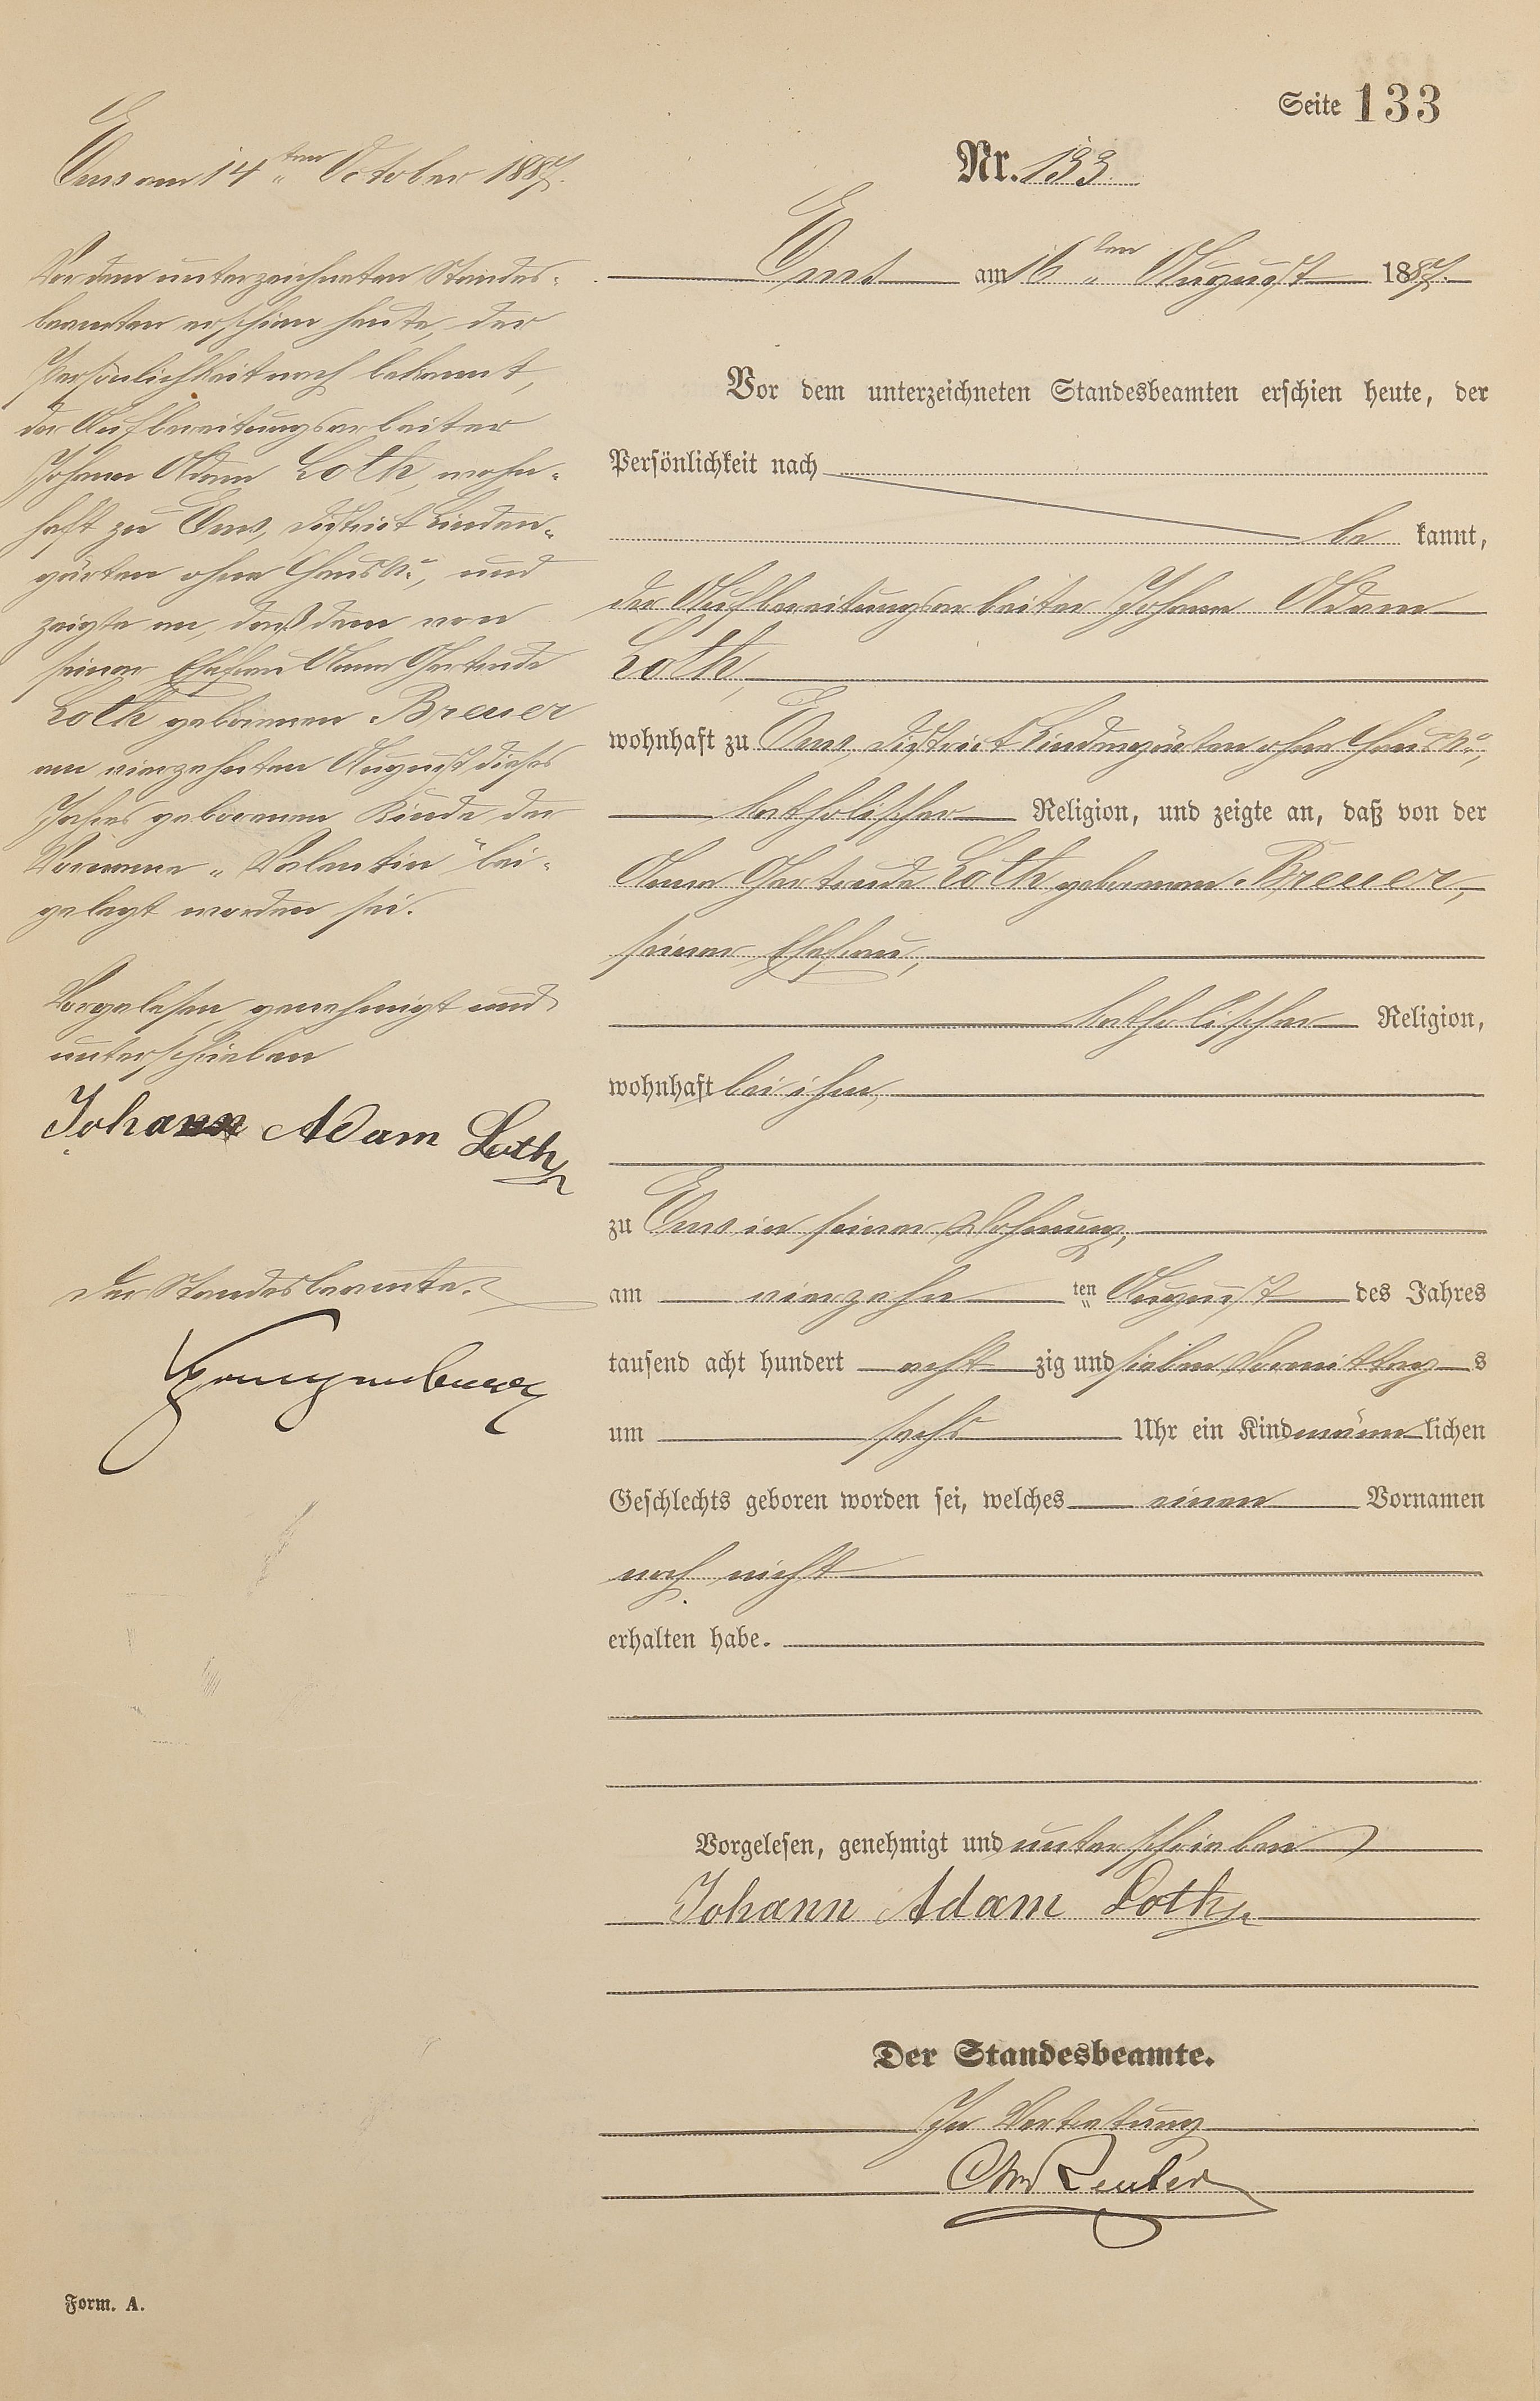 Seite 133
Nr. 133
Ems am 16ten August 1887.
Vor dem unterzeichneten Standesbeamten erschien heute, der
Persönlichkeit nach
be kannt,
der Aufbereitungsarbeiter Johann Adam
Loth,
wohnhaft zu Ems, District Lindengärten ohne Haus No,
katholischer Religion, und zeigte an, daß von der
Anna Gertrude Loth geborenen Breuer,
seiner Ehefrau,
katholischer Religion,
wohnhaft bei ihm,
zu Ems in seiner Wohnung,
am vierzehn ten August des Jahres
tausend acht hundert acht zig und sieben Vormittag s
um sechs Uhr ein Kind männ lichen
Geschlechts geboren worden sei, welches einen Vornamen
noch nicht
erhalten habe.
Vorgelesen, genehmigt und unterschrieben
Johann Adam Loth
Der Standesbeamte.
In Vertretung
Reuter
Ems am 14ten October 1887.
Vor dem unterzeichneten Standes-
beamten erschien heute, der
Persönlichkeit nach bekannt,
der Aufbereitungsarbeiter
Johann Adam Loth, wohn-
haft zu Ems, District Linden-
gärten ohne Haus No, und
zeigte an, daß dem von
seiner Ehefrau Anna Gertrude
Loth geborenen Breuer
am vierzehnten August dieses
Jahres geborenen Kinde der
Vorname „Valentin" bei-
gelegt worden sei.
Vorgelesen, genehmigt und
unterschrieben
Johann Adam Loth
Der Standesbeamte.
Form. A.